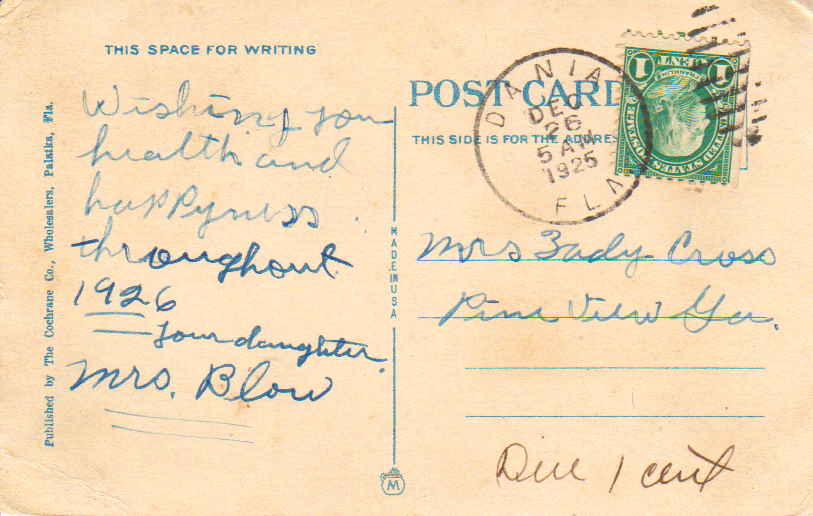 THIS SPACE FOR WRITING
Wishing you
health and
happyness
throughout
1926
Your daughter.
Mrs. Blow
Published by The Cochrane Co., Wholesalers, Palatka, Fla.
MADE IN USA
M
POST CARD
THIS SIDE IS FOR THE ADDRESS
DANIA
DEC
26
5 AM
1925
FLA
1 CENT 1
UNITED STATES POSTAGE
Mrs Zady Cross
Pine View Ga.
Due 1 cent